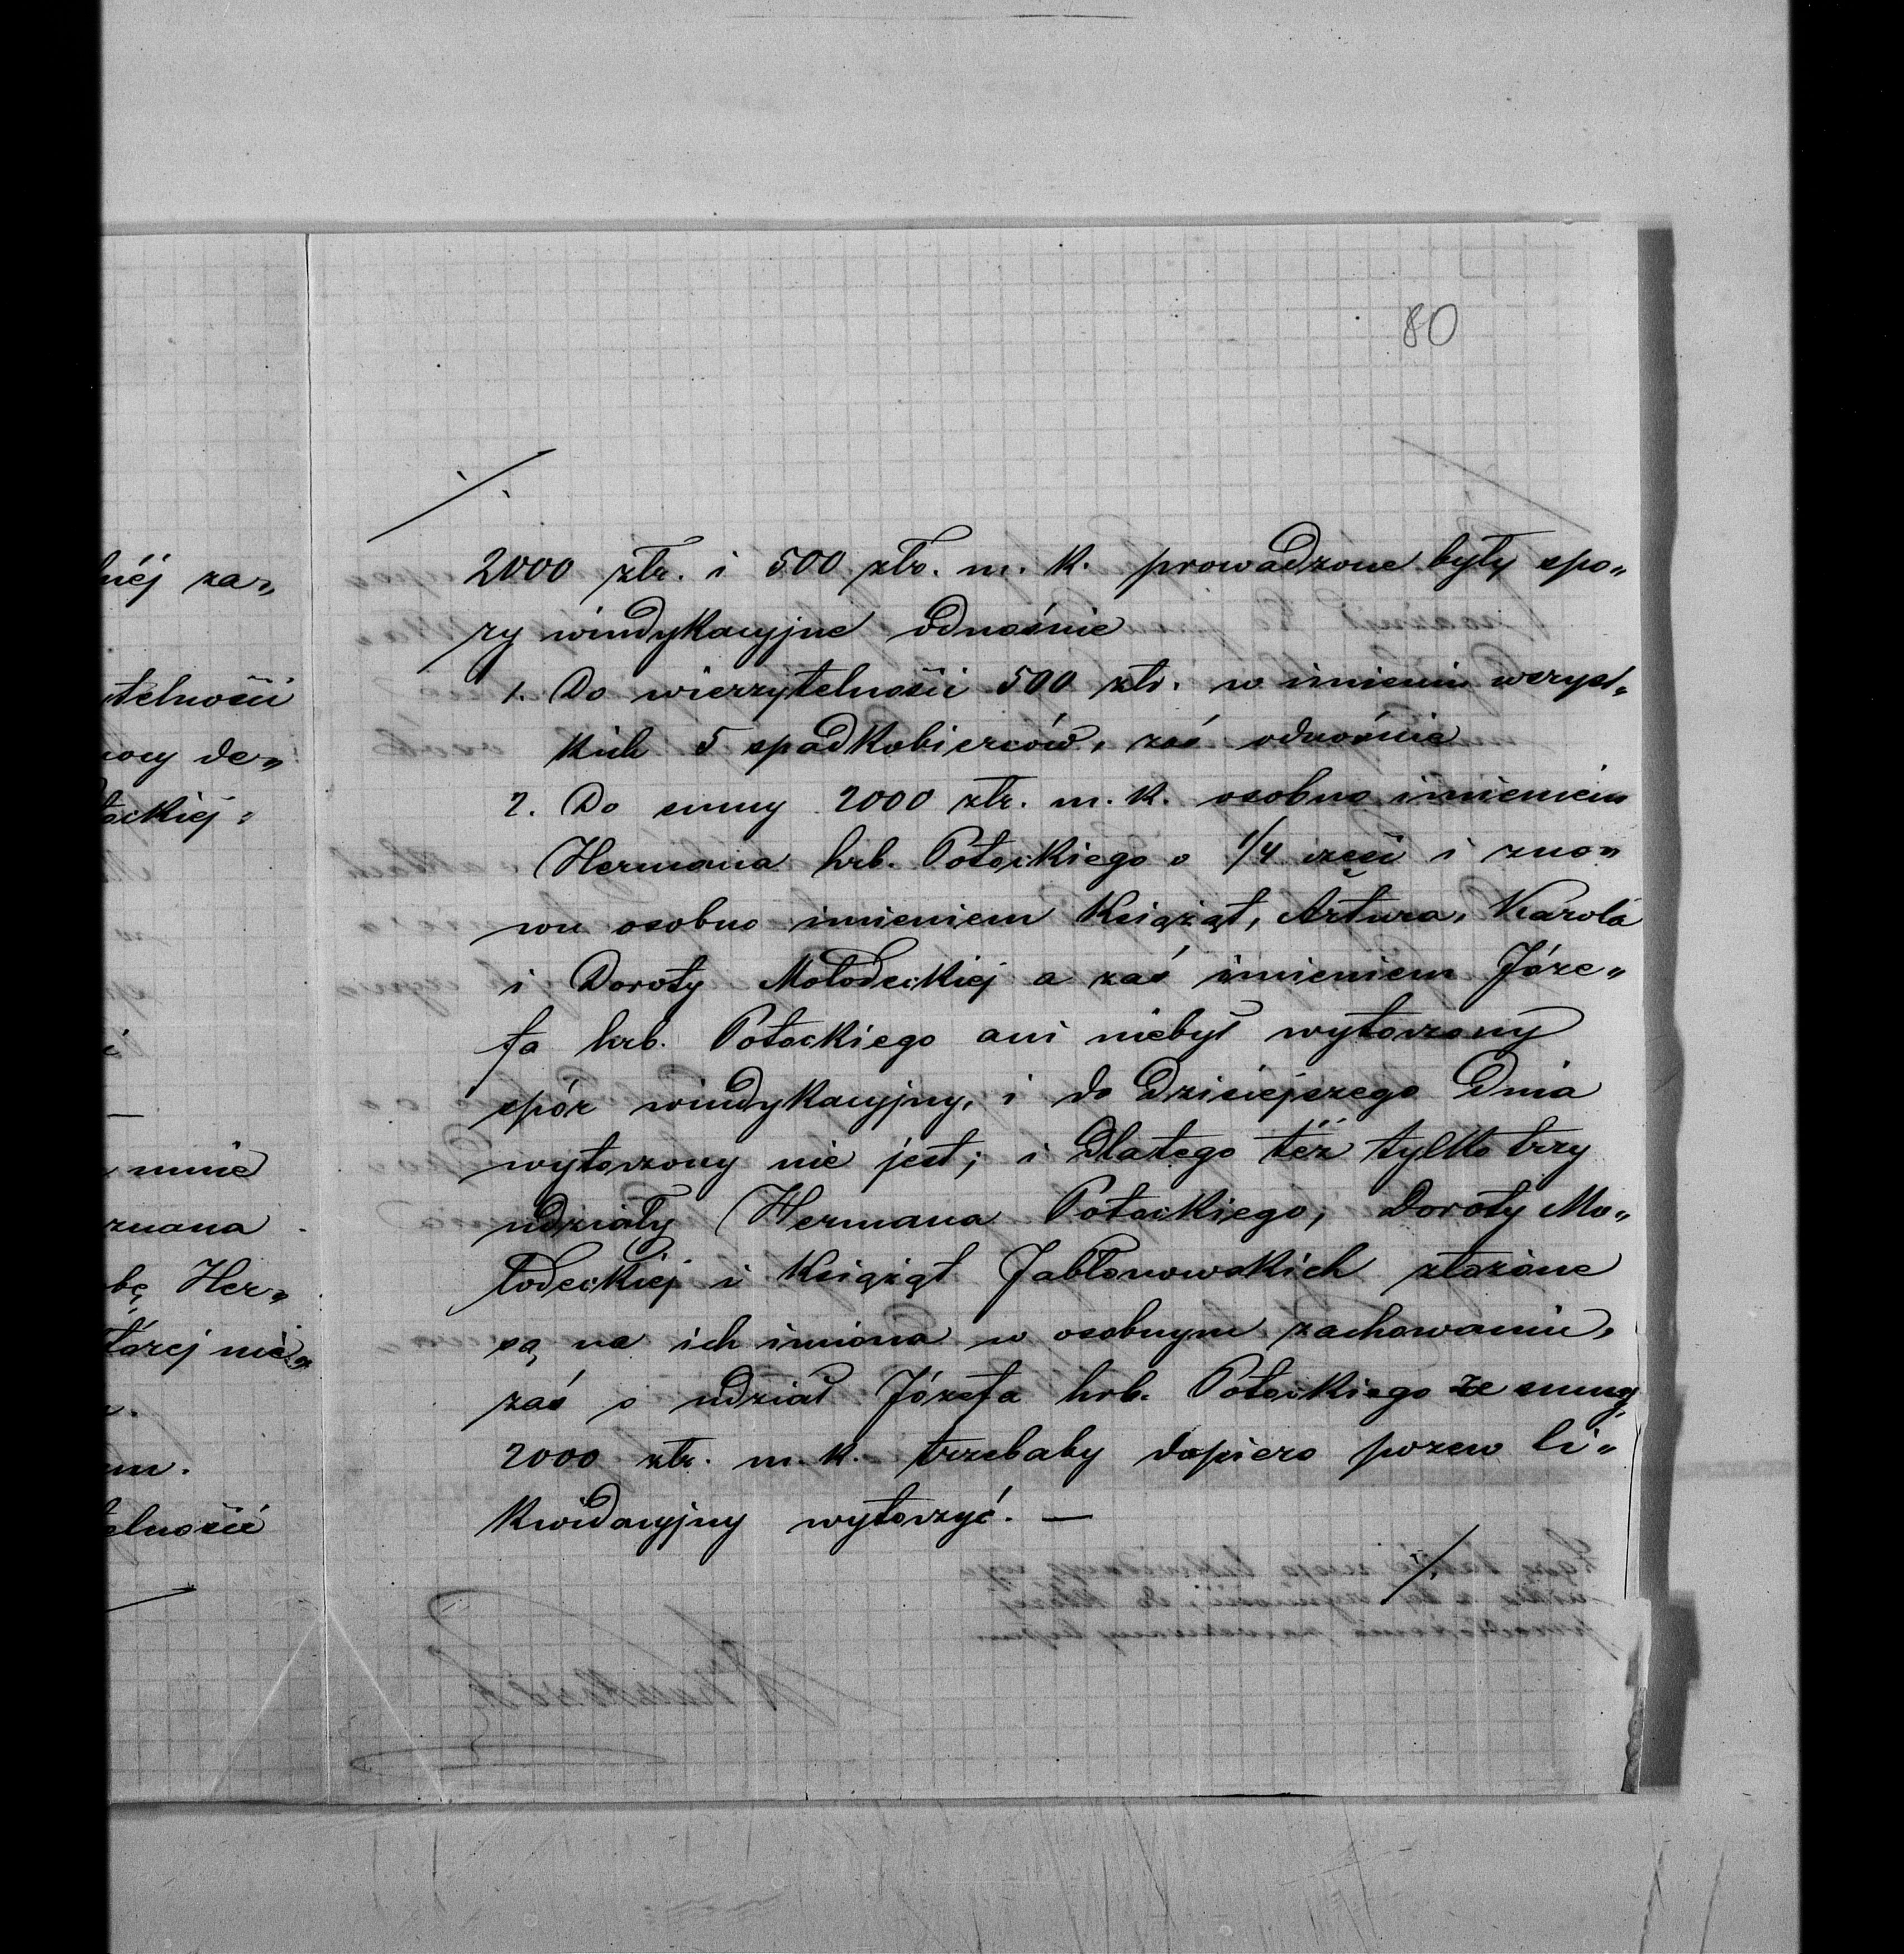 80
./.
2000 złr. i 500 złr. m. k. prowadzone były spo„
ry windykacyjne odnośnie
1. Do wierzytelności 500 złr. w imieniu wszyst„
kich 5 spadkobierców, zaś odnośnie
2. Do sumy 2000 złr. m. k. osobno imieniem
Hermana hrb. Potockiego o 1/4 części i zno„
wu osobno imieniem Książąt, Artura, Karola
i Doroty Mołodeckiej a zaś imieniem Józe„
fa hrb. Potockiego ani niebył wytoczony
spór windykacyjny, i do dzisiejszego dnia
wytoczony nie jest; i dlatego też tylko trzy
udziały Hermana Potockiego, Doroty Mo„
łodeckiej i Książąt Jabłonowskich złożone
są na ich imiona w osobnym zachowaniu,
zaś o udział Józefa hrb. Potockiego ze sumy
2000 złr. m. k. trzebaby dopiero pozew li„
kwidacyjny wytoczyć. —
./.
za„
telności
de„
tockiej:
mnie
znana
bę Her„
tórej nie„
elności